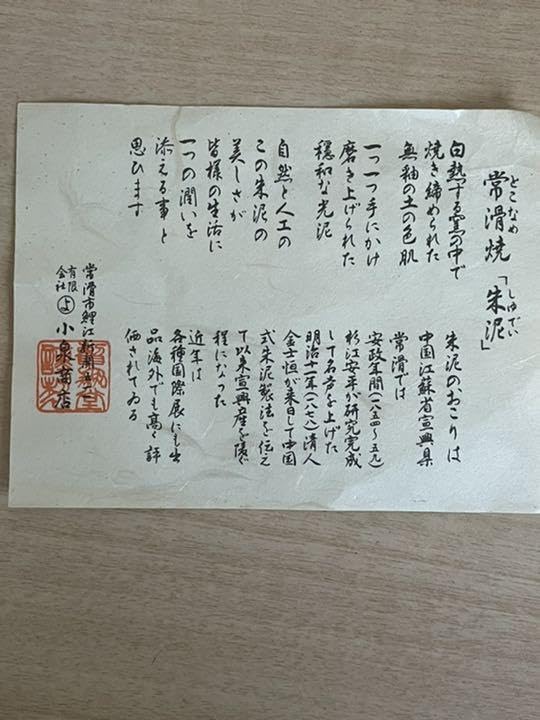 とこなめ
常滑焼
しゅでい
「朱泥」
白熱する窯の中で
焼き締められた
無釉の土の色肌
一つ一つ手にかけ
磨き上げられた
穏和な光泥
自然と人工の
この朱泥の
美しさが
皆様の生活に
一つの潤いを
添える事と
思ひます
朱泥のおこりは
中国江蘇省宜興県
常滑では
安政年間(一八五四〜五九)
杉江安平が研究完成
して名声を上げた
明治十一年(一八七八)清人
金士恒が来日して中国
式朱泥製法を伝え
て以来宜興産を凌ぐ
程になった
近年は
各種国際展にも出
品海外でも高く評
価されてゐる
常滑市鯉江新開
有限
会社
小泉商店